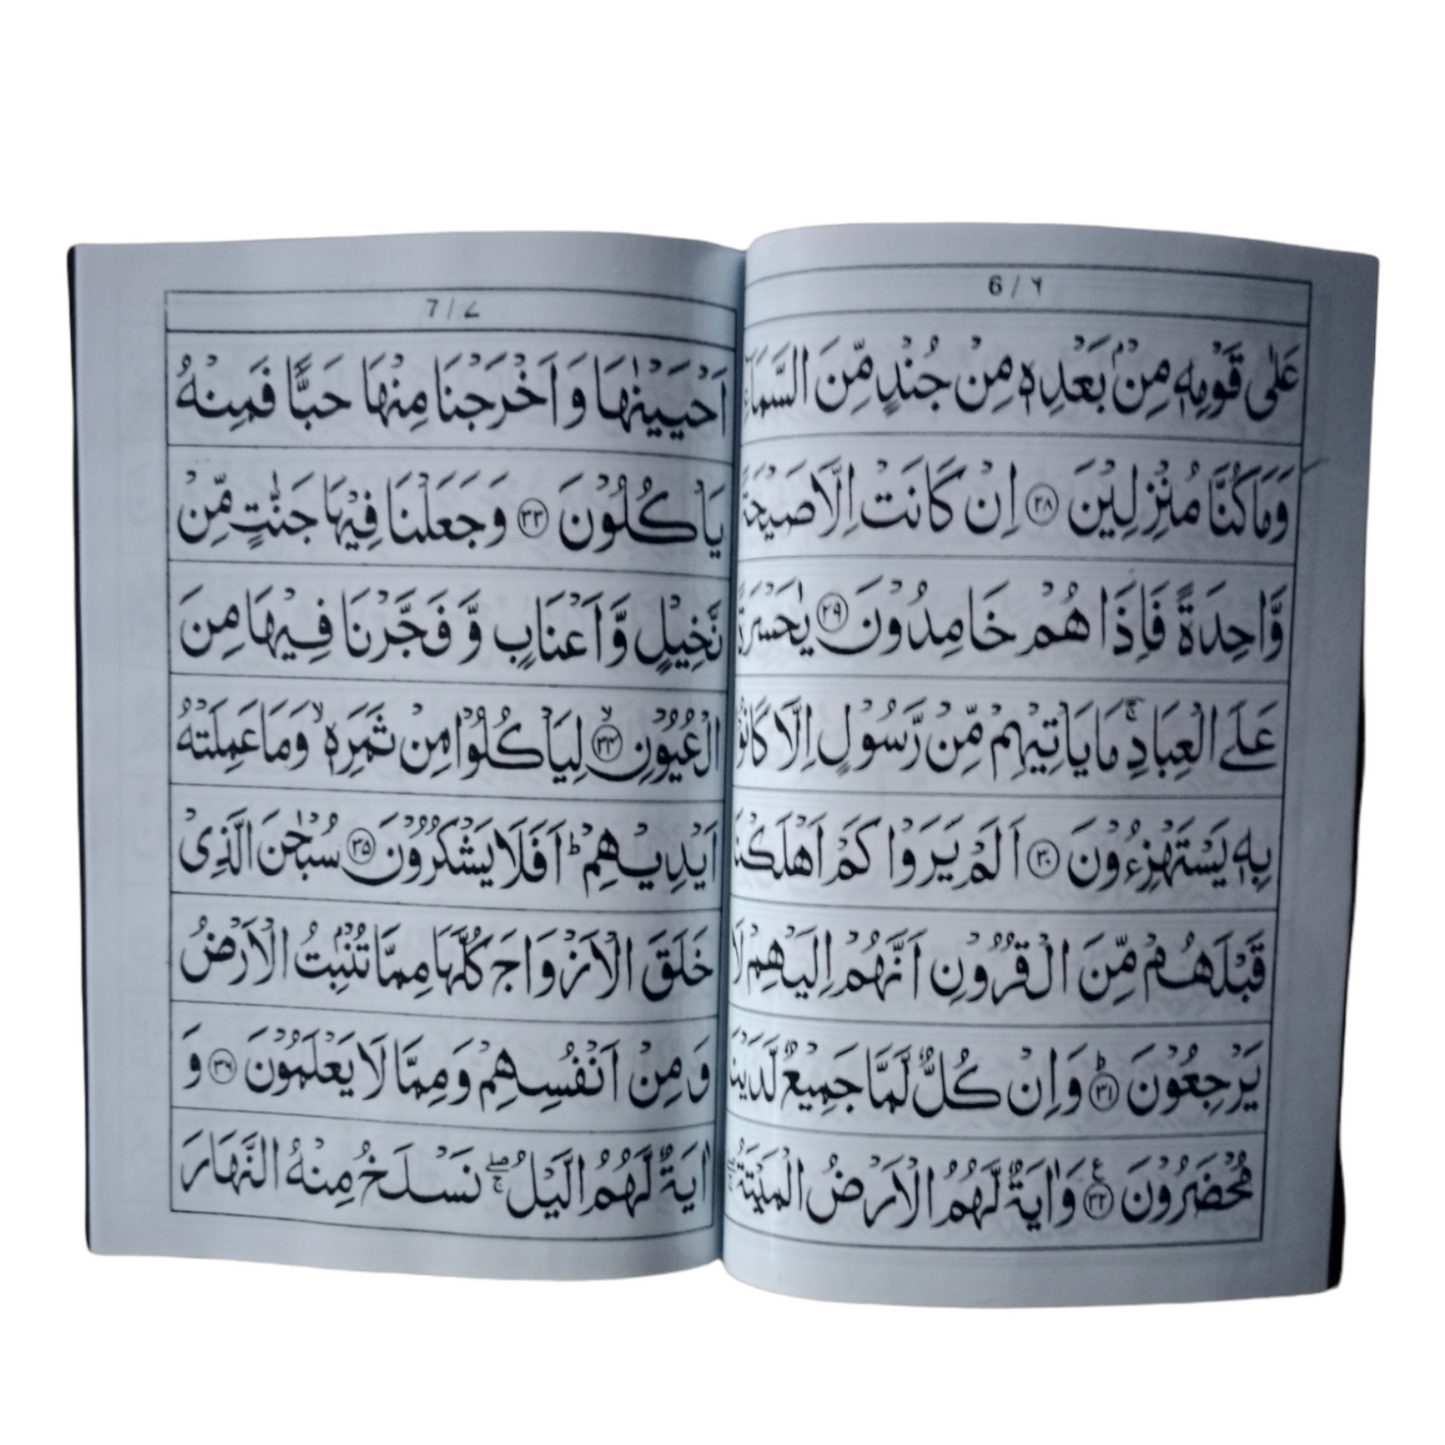 6 / ٦
عَلٰى قَوْمِهٖ مِنْۢ بَعْدِهٖ مِنْ جُنْدٍ مِّنَ السَّمَآءِ
وَمَا كُنَّا مُنْزِلِيْنَ ﴿۲۸﴾ اِنْ كَانَتْ اِلَّا صَيْحَةً
وَّاحِدَةً فَاِذَا هُمْ خَامِدُوْنَ ﴿۲۹﴾ يٰحَسْرَةً
عَلَى الْعِبَادِ ۚ مَا يَاْتِيْهِمْ مِّنْ رَّسُوْلٍ اِلَّا كَانُوْا
بِهٖ يَسْتَهْزِءُوْنَ ﴿۳۰﴾ اَلَمْ يَرَوْا كَمْ اَهْلَكْنَا
قَبْلَهُمْ مِّنَ الْقُرُوْنِ اَنَّهُمْ اِلَيْهِمْ لَا
يَرْجِعُوْنَ ﴿۳۱﴾ؕ وَاِنْ كُلٌّ لَّمَّا جَمِيْعٌ لَّدَيْنَا
مُحْضَرُوْنَ ﴿۳۲﴾ وَاٰيَةٌ لَّهُمُ الْاَرْضُ الْمَيْتَةُ
7 / ۷
اَحْيَيْنٰهَا وَ اَخْرَجْنَا مِنْهَا حَبًّا فَمِنْهُ
يَاْكُلُوْنَ ﴿۳۳﴾ وَجَعَلْنَا فِيْهَا جَنّٰتٍ مِّنْ
نَّخِيْلٍ وَّاَعْنَابٍ وَّ فَجَّرْنَا فِيْهَا مِنَ
الْعُيُوْنِ ﴿۳۴﴾ۙ لِيَاْكُلُوْا مِنْ ثَمَرِهٖ ۙ وَمَا عَمِلَتْهُ
اَيْدِيْهِمْ ؕ اَفَلَا يَشْكُرُوْنَ ﴿۳۵﴾ سُبْحٰنَ الَّذِىْ
خَلَقَ الْاَزْوَاجَ كُلَّهَا مِمَّا تُنْۢبِتُ الْاَرْضُ
وَمِنْ اَنْفُسِهِمْ وَمِمَّا لَا يَعْلَمُوْنَ ﴿۳۶﴾ وَ
اٰيَةٌ لَّهُمُ الَّيْلُ ۖۚ نَسْلَخُ مِنْهُ النَّهَارَ